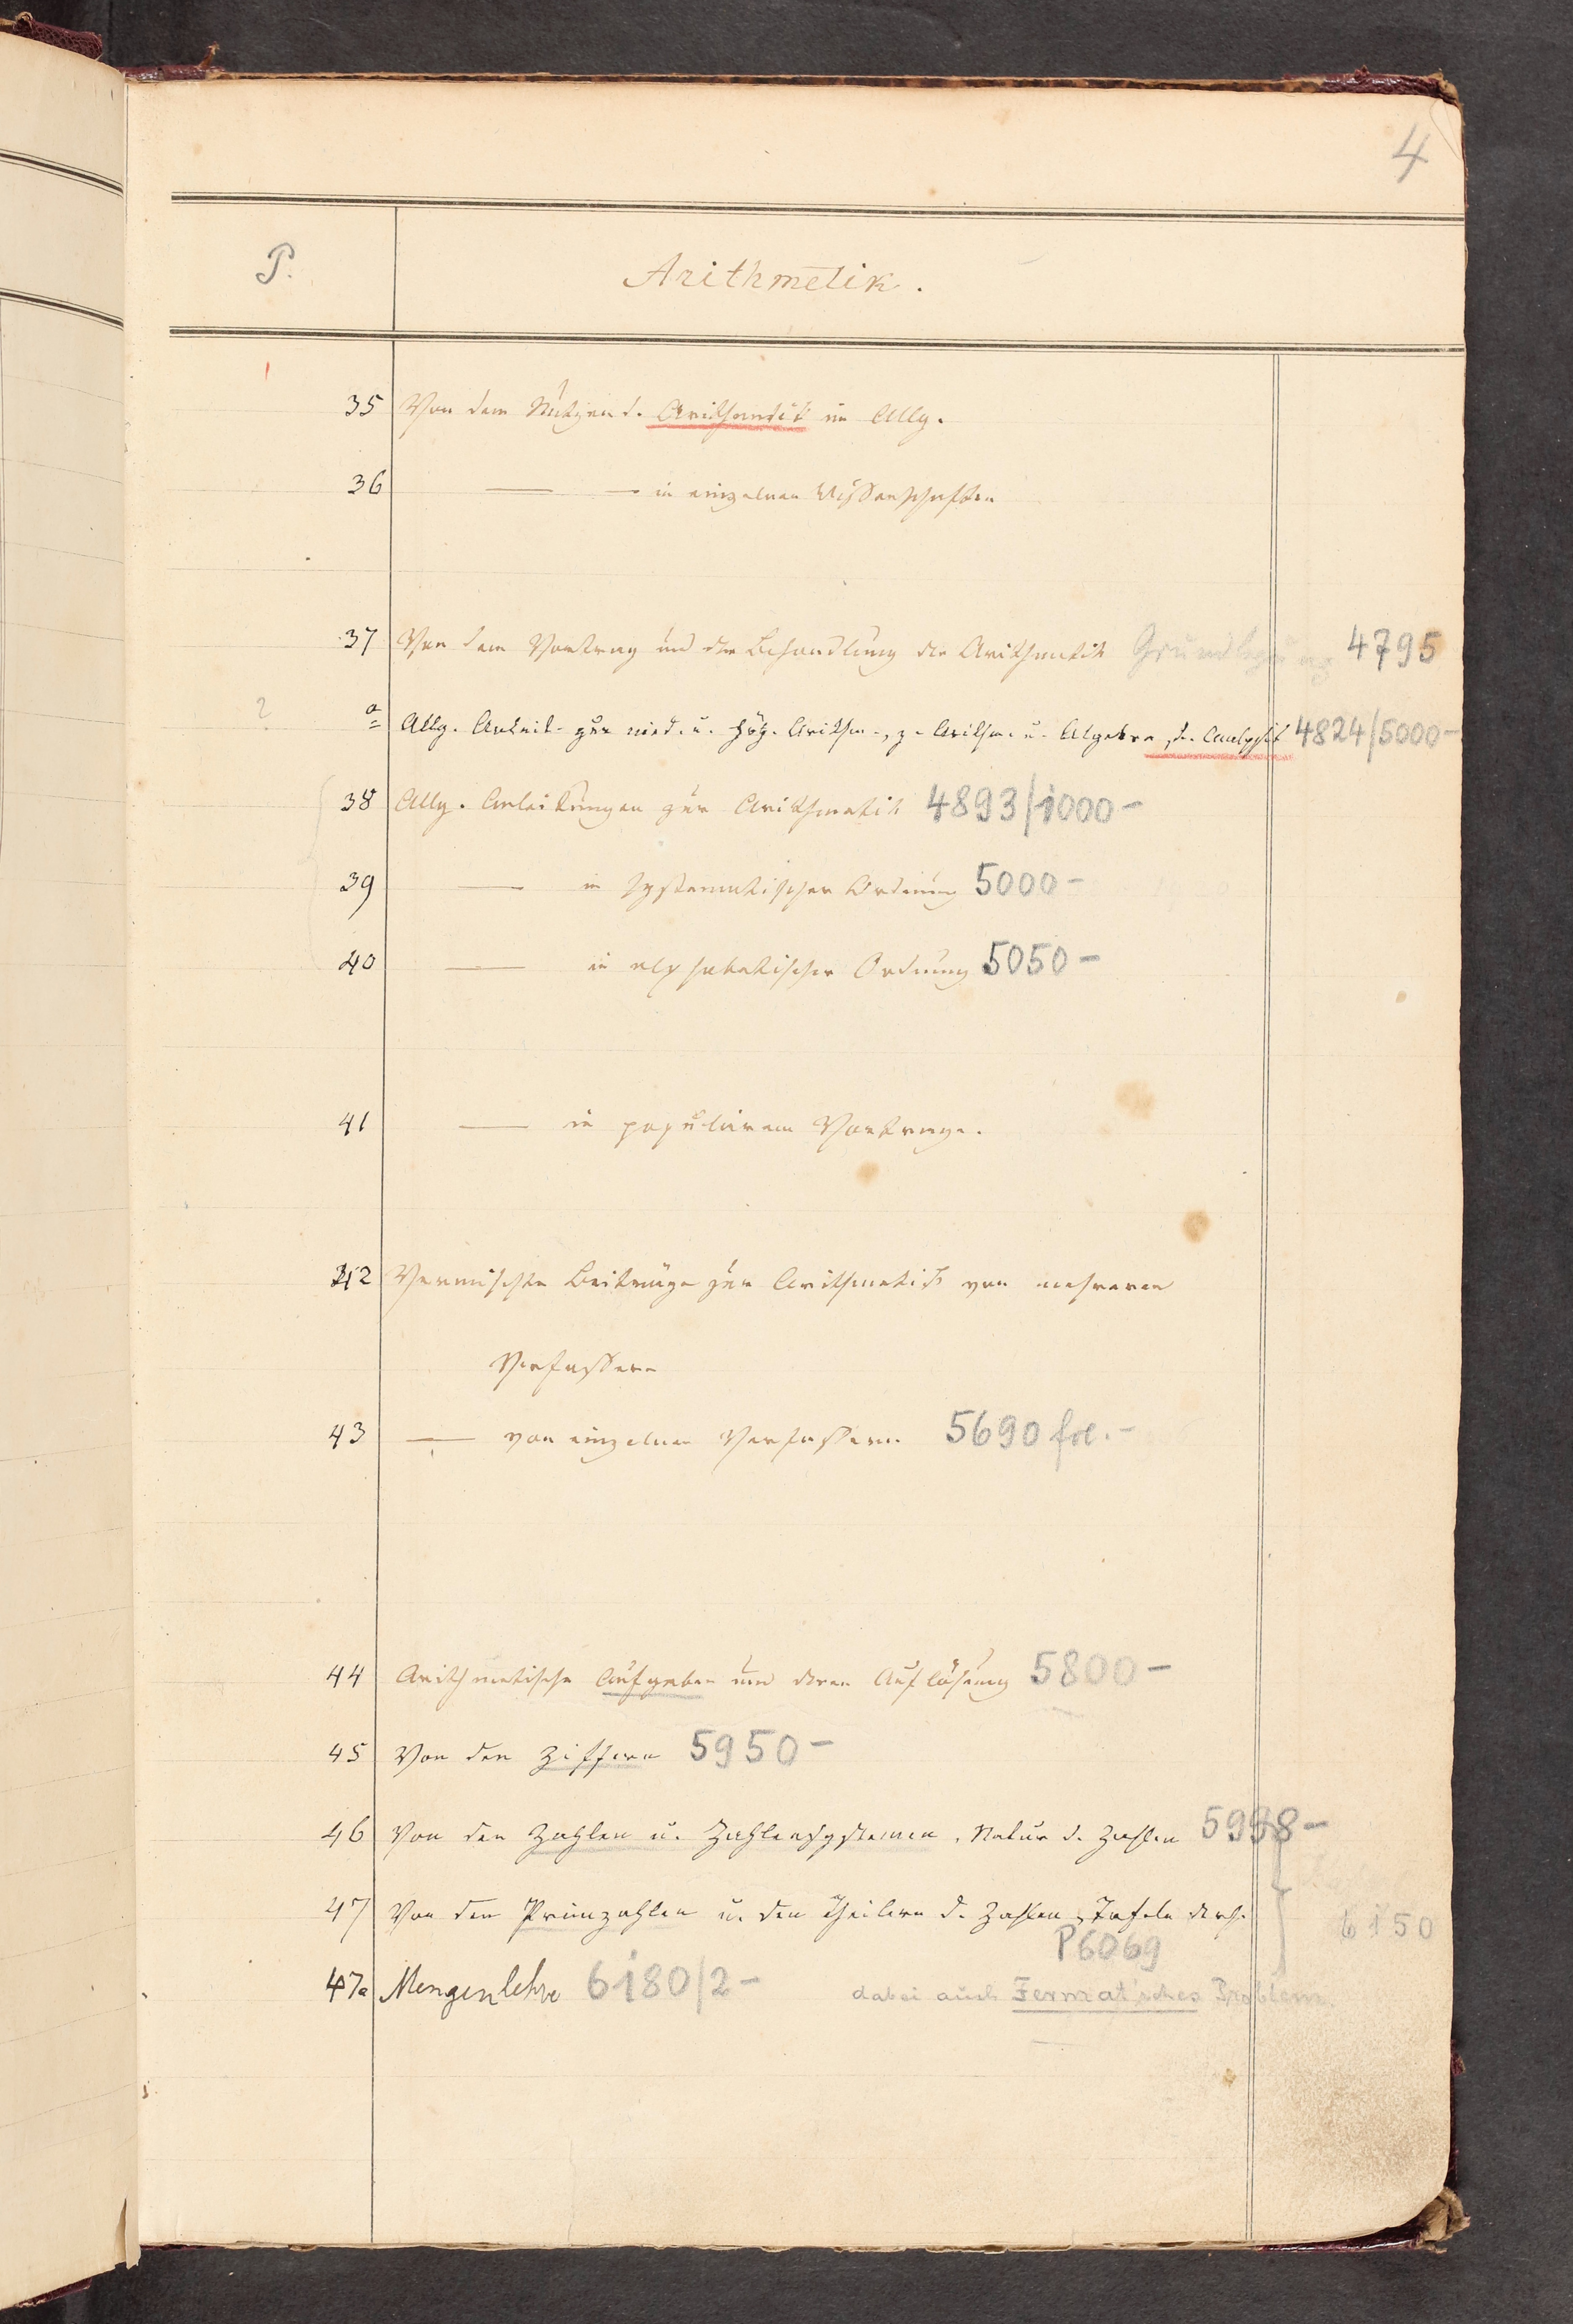 4
P. Arithmetik.
35 Von dem Nutzen d. Arithmetik im Allg.
36 — — in einzelnen Wissenschaften
37 Von dem Vortrag und der Behandlung der Arithmetik Grundlegung 4795
? a Allg. Anleit. zur nied. u. höh. Arithm., z. Arithm. u. Algebra, d. Analysis 4824/5000-
38 Allg. Anleitungen zur Arithmetik 4893/1000-
39 — in systematischer Ordnung 5000-
40 — in alphabetischer Ordnung 5050-
41 — in populärem Vortrage.
42 Vermischte Beiträge zur Arithmetik von mehreren
Verfassern
43 — von einzelnen Verfassern 5690 fol.-
44 Arithmetische Aufgaben und deren Auflösung 5800-
45 Von den Ziffern 5950-
46 Von den Zahlen u. Zahlensystemen, Natur d. Zahlen 5998-
47 Von den Primzahlen u. den Theilern d. Zahlen, Tafeln ders. 6150
P6069
47a Mengenlehre 6180/2- dabei auch Fermat'sches Problem.